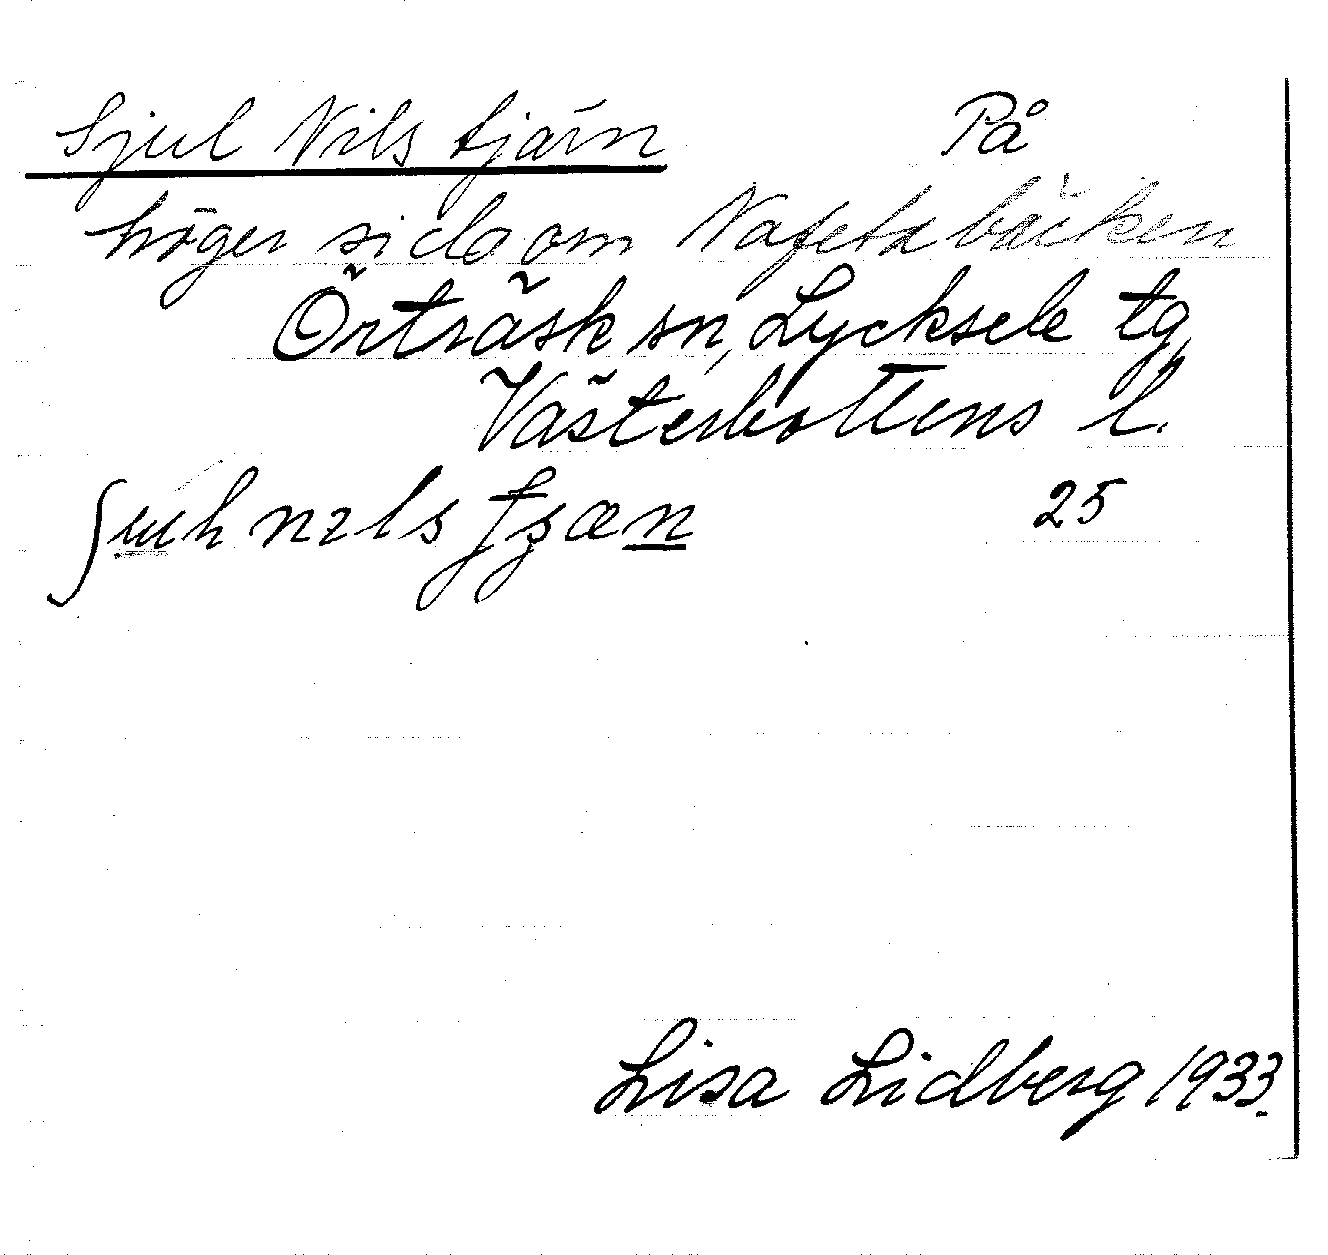 Sjul Nils tjärn På
höger sida om Nafeta bäcken
Örträsk sn, Lycksele tg
Västerbottens l.
25
Lisa Lidberg 1933.